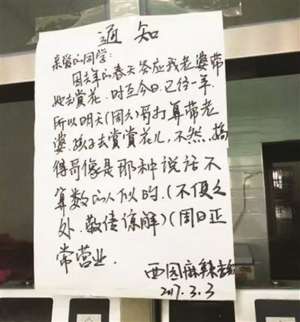 通知
亲爱的同学:
因去年的春天答应我老婆带
她去赏花,时至今日已经一年,
所以明天(周六)哥打算带老
婆孩子去赏赏花儿,不然,搞
得哥像是那种说话不
算数的人似的.(不便之
处,敬请谅解)(周日正
常营业.
西园麻辣
2017.3.3